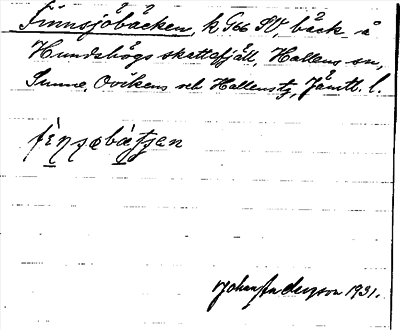 Finnsjöbäcken, k G66 SV, bäck å
Hundshögs skattefjäll, Hallens sn,
Sunne, Ovikens och Hallens tg, Jämtl. l.
fìnsøbä̀tʃan
Johan Anderson 1931.